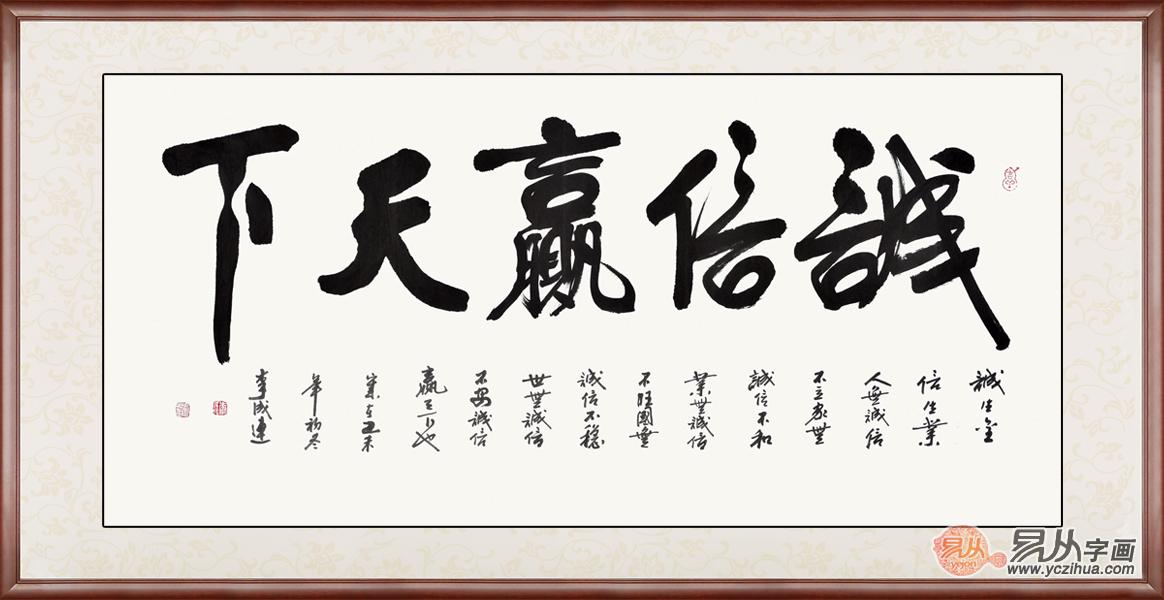 誠信贏天下
誠生金
信生業
人無誠信
不立家無
誠信不和
業無誠信
不旺國無
誠信不穩
世無誠信
不安誠信
贏天下也
歲在乙未
年初冬
李成連
易从
易从字画
www.yczihua.com